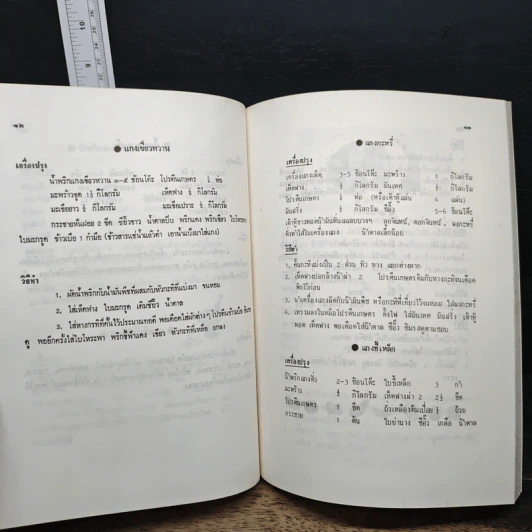 10
9
๑๒
● แกงเขียวหวาน
เครื่องปรุง
น้ำพริกแกงเขียวหวาน ๓-๕ ช้อนโต๊ะ โปรตีนเกษตร ½ ห่อ
มะพร้าวขูด ๑½ กิโลกรัม เห็ดฟาง ½ กิโลกรัม
มะเขือยาว ½ กิโลกรัม มะเขือเปราะ ½ กิโลกรัม
กระชายหั่นฝอย ๒ ขีด ซีอิ๊วขาว น้ำตาลปีบ พริกแดง พริกเขียว ใบโหระพา
ใบมะกรูด ข้าวเบือ ๑ กำมือ (ข้าวสารแช่น้ำแล้วตำ เอาน้ำแป้งมาใส่แกง)
วิธีทำ
๑. ผัดน้ำพริกกับน้ำมันพืชที่ผสมกับหัวกะทิที่แบ่งมา จนหอม
๒. ใส่เห็ดฟาง ใบมะกรูด เติมซีอิ๊ว น้ำตาล
๓. ใส่หางกะทิที่คั้นไว้ประมาณพอดี พอเดือดใส่ผักต่างๆ โปรตีนข้าวเบือ ชิม
ดู พอยกขึ้นใส่ใบโหระพา พริกชี้ฟ้าแดง เขียว หัวกะทิที่เหลือ ยกลง
๑๓
● แกงกะหรี่
เครื่องปรุง
เครื่องแกงเผ็ด 3-5 ช้อนโต๊ะ มะพร้าว 1 กิโลกรัม
เห็ดฟาง ½ กิโลกรัม มันเทศ ½ กิโลกรัม
โปรตีนเกษตร ½ ห่อ (หรือเต้าหู้แผ่น 4 แผ่น)
มันฝรั่ง ½ กิโลกรัม ซีอิ๊ว 5-6 ช้อนโต๊ะ
เต้าหู้ขาวทอดน้ำมันหั่นแฉลบบางๆ ลูกจันทน์, ดอกจันทน์, ผงกะหรี่
คั่วตำใส่ในเครื่องแกง น้ำตาลเล็กน้อย
วิธีทำ
1. คั้นกะทิแบ่งเป็น 2 ส่วน หัว หาง แยกต่างหาก
2. เห็ดฟางปอกล้างผ่า 2 โปรตีนเกษตรต้มกับหางกะทิจนเดือด
พักไว้ก่อน
3. นำเครื่องแกงผัดกับน้ำมันพืช หรือกะทิที่เคี่ยวไว้จนหอม ใส่ผงกะหรี่
4. เทรวมลงในหม้อโปรตีนเกษตร ตั้งไฟ ใส่มันเทศ มันฝรั่ง เต้าหู้
ทอด เห็ดฟาง พอเดือดใส่น้ำตาล ซีอิ๊ว ชิมรสดูตามชอบ
● แกงขี้เหล็ก
เครื่องปรุง
น้ำพริกแกงคั่ว 2-3 ช้อนโต๊ะ ใบขี้เหล็ก 3 กำ
มะพร้าว ½ กิโลกรัม เห็ดฟางผ่า 2 2½ ขีด
โปรตีนเกษตร 1 ขีด ถั่วเหลืองต้มเปื่อย ½ ถ้วย
กระชาย 3 ต้น ใบย่านาง ซีอิ๊ว เกลือ น้ำตาล